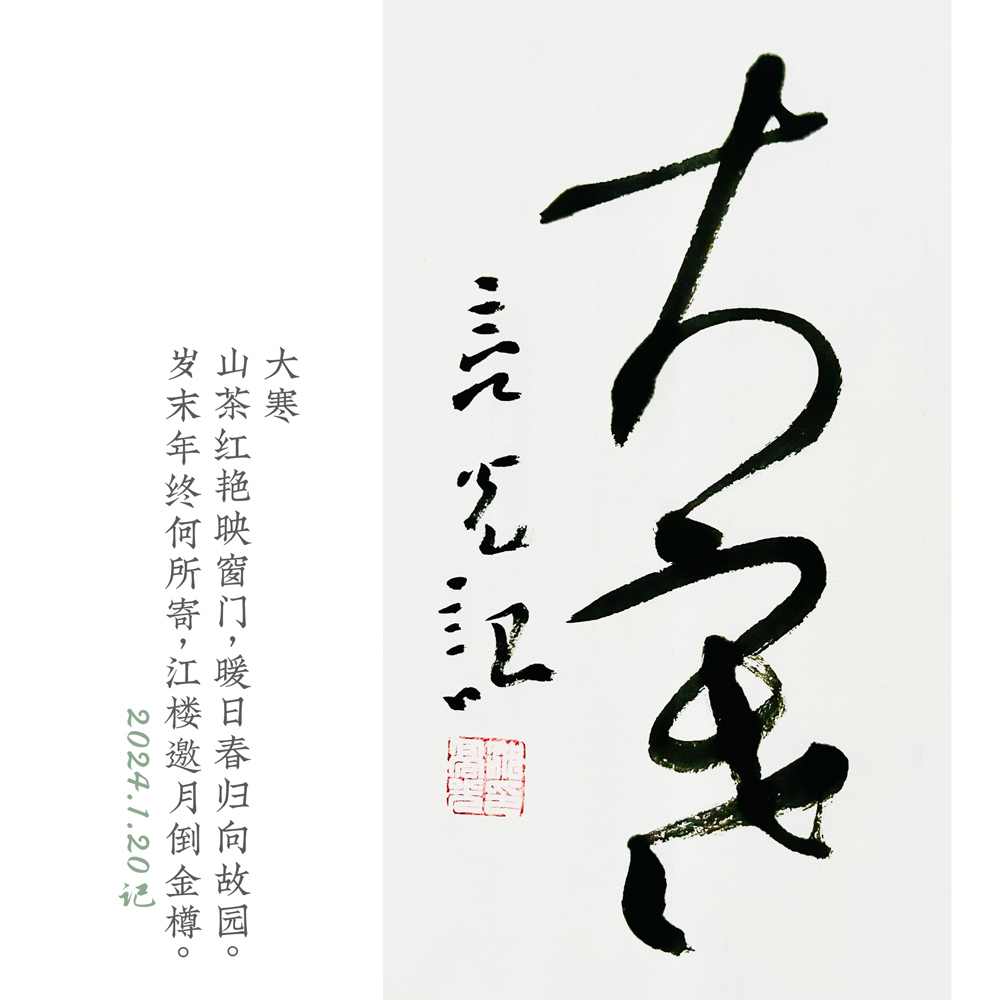 大寒
光記
大寒
山茶红艳映窗门，暖日春归向故园。
岁末年终何所寄，江楼邀月倒金樽。
2024.1.20记